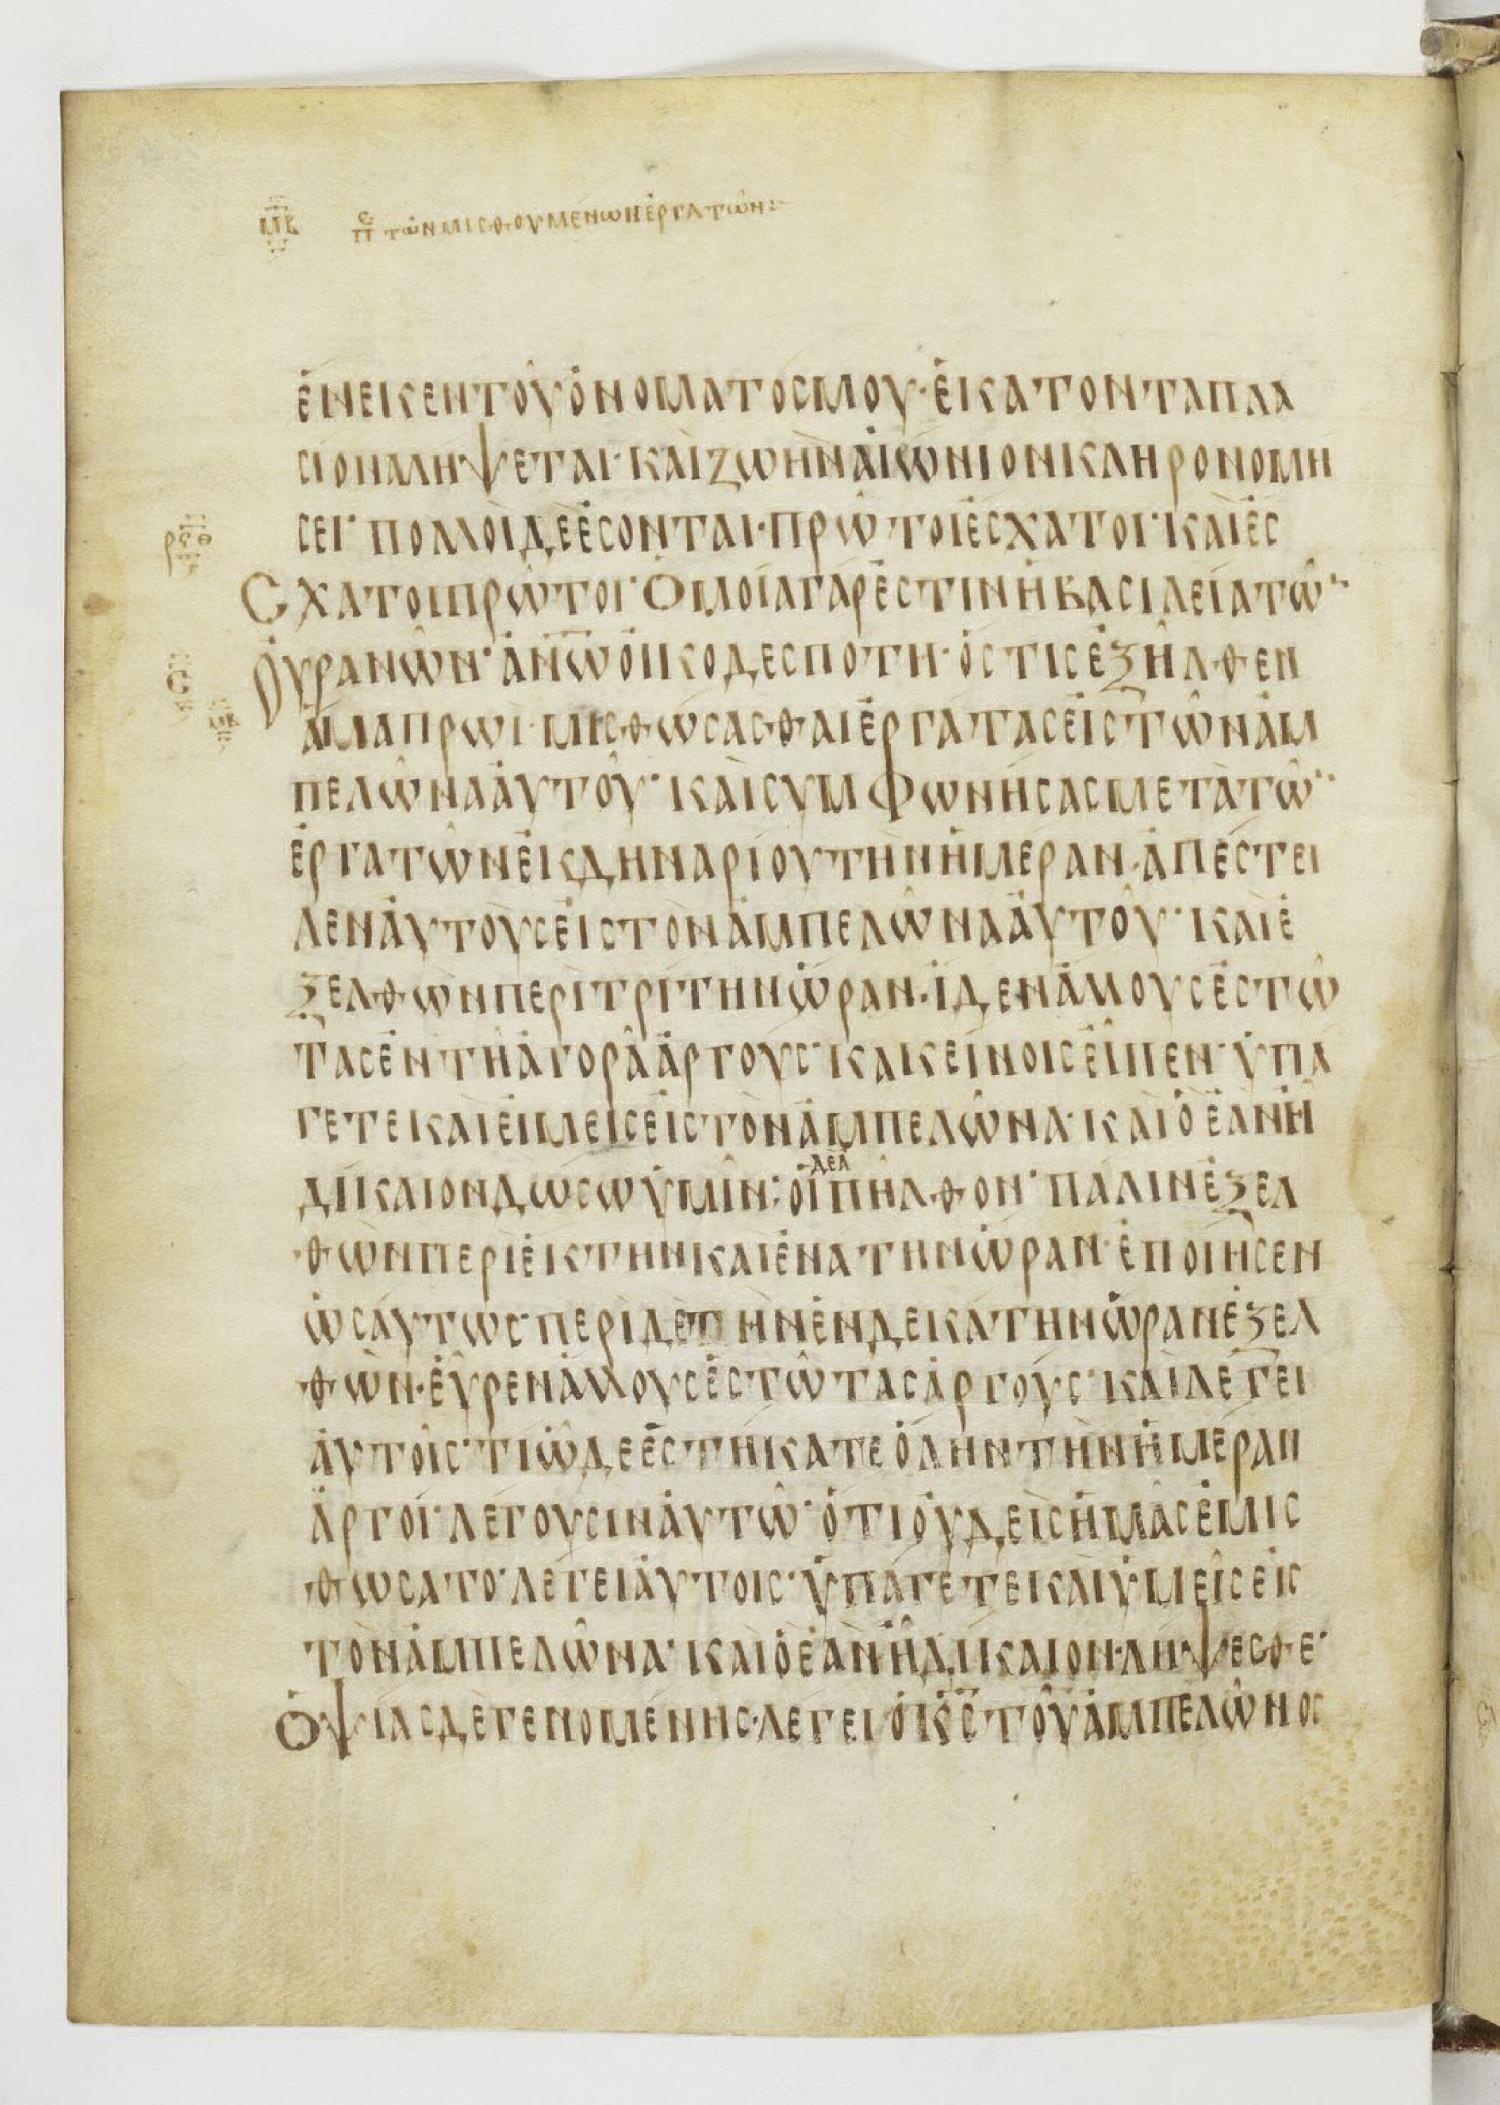 ΜΒ ΠΕ ΤῶΝ ΜΙΣΘΟΥΜΕΝΩΝ ἐΡΓΑΤῶΝ:
ἕΝΕΚΕΝ ΤΟῦ ὀΝΟΜΑΤΟΣ ΜΟΥ· ἑΚΑΤΟΝΤΑΠΛΑ
ΣΙΟΝΑ ΛΗΨΕΤΑΙ· ΚΑὶ ΖΩΗΝ ΑἰΩΝΙΟΝ ΚΛΗΡΟΝΟΜΗ
ΣΕΙ· ΠΟΛΛΟὶ ΔΕ ἔΣΟΝΤΑΙ· ΠΡῶΤΟΙ ἔΣΧΑΤΟΙ· ΚΑὶ ἔΣ
ΧΑΤΟΙ ΠΡῶΤΟΙ· ὁΜΟΙΑ ΓΑΡ ἐΣΤΙΝ ἡ ΒΑΣΙΛΕΙΑ ΤῶΝ
ΟὐΡΑΝῶΝ· ἀΝΩ ΟἰΚΟΔΕΣΠΟΤΗ· ὅΣΤΙΣ ἐΞῆΛΘΕΝ
ἅΜΑ ΠΡΩΙ· ΜΙΣΘΩΣΑΣΘΑΙ ἐΡΓΑΤΑΣ ΕἰΣ ΤῶΝ ἀΜ
ΠΕΛῶΝΑ ΑὐΤΟῦ· ΚΑὶ ΣΥΜΦΩΝΗΣΑΣ ΜΕΤΑ ΤῶΝ
ἐΡΓΑΤῶΝ ἐΚ ΔΗΝΑΡΙΟΥ ΤΗΝ ἡΜΕΡΑΝ· ἀΠΕΣΤΕΙ
ΛΕΝ ΑὐΤΟΥΣ ΕἰΣ ΤΟΝ ἀΜΠΕΛῶΝΑ ΑὐΤΟῦ· ΚΑΙ ἐ
ΞΕΛΘὼΝ ΠΕΡΙ ΤΡΙΤΗΝ ὥΡΑΝ· ἰΔΕΝ ἄΛΛΟΥΣ ἑΣΤῶ
ΤΑΣ ἐΝ ΤῆἀΓΟΡᾶ ἀΡΓΟΥΣ· ΚΑΚΕΙΝΟΙΣ ΕἶΠΕΝ· ὑΠΑ
ΓΕΤΕ ΚΑΙ ὑΜΕΙΣ ΕἰΣ ΤΟΝ ἀΜΠΕΛῶΝΑ· ΚΑὶ ὃ ἐΑΝ ᾖ
ΔΙΚΑΙΟΝ ΔΩΣΩ ὑΜῖΝ· Οἱ ΔΕ ἀΠῆΛΘΟΝ· ΠΑΛΙΝ ἐΞΕΛ
ΘΩΝ ΠΕΡΙ ἕΚΤΗΝ ΚΑΙ ἐΝΑΤΗΝ ὥΡΑΝ· ἐΠΟΙΗΣΕΝ
ὡΣΑΥΤΩΣ· ΠΕΡΙ ΔΕ ΤΗΝ ἑΝΔΕΚΑΤΗΝ ὥΡΑΝ ἐΞΕΛ
ΘὼΝ· ΕὗΡΕΝ ἄΛΛΟΥΣ ἑΣΤῶΤΑΣ ἀΡΓΟΥΣ· ΚΑὶ ΛΕΓΕΙ
ΑὐΤΟῖΣ· ΤΙ ὧΔΕ ἑΣΤΗΚΑΤΕ ὅΛΗΝ ΤΗΝ ἡΜΕΡΑΝ
ἀΡΓΟΙ· ΛΕΓΟΥΣΙΝ ΑὐΤῶ· ὅΤΙ ΟὐΔΕΙΣ ἡΜᾶΣ ἐΜΙΣ
ΘΩΣΑΤΟ· ΛΕΓΕΙ ΑὐΤΟΙΣ· ὑΠΑΓΕΤΕ ΚΑΙ ὑΜΕῖΣ ΕἰΣ
ΤΟΝ ἀΜΠΕΛῶΝΑ· ΚΑΙ ὃ ἐΑΝ ᾖ ΔΙΚΑΙΟΝ· ΛΗΨΕΣΘΕ·
ὈΨΙΑΣ ΔΕ ΓΕΝΟΜΕΝΗΣ· ΛΕΓΕΙ ὁ ΚΣ ΤΟῦ ἀΜΠΕΛῶΝΟΣ